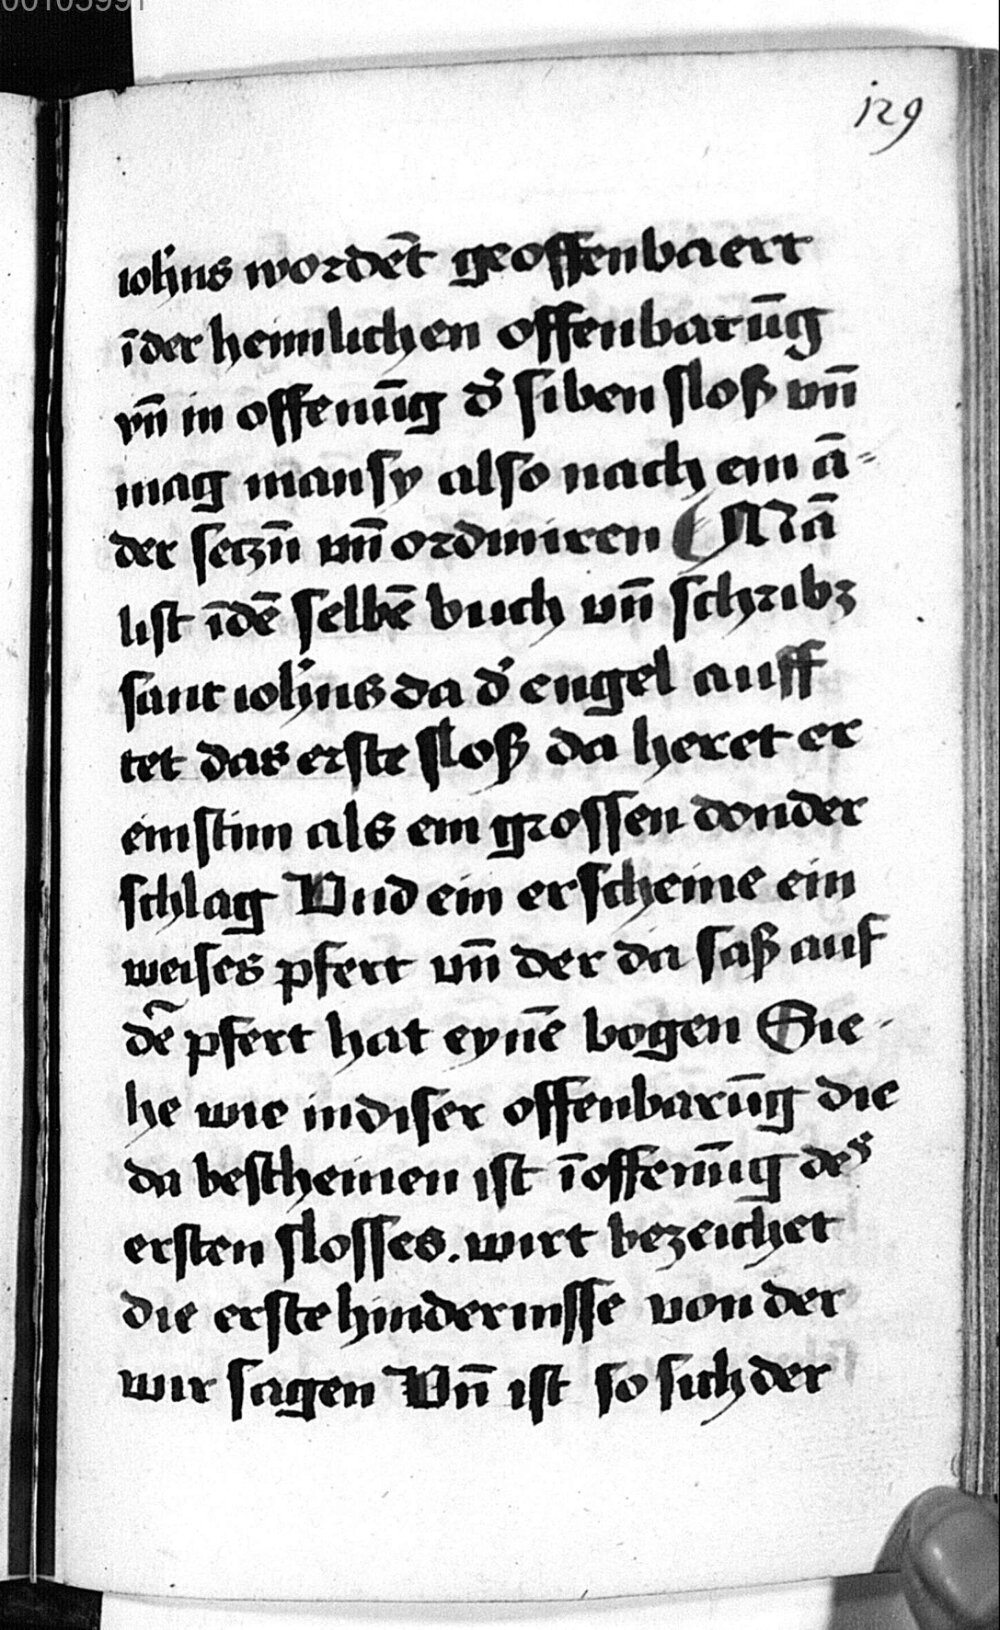 00105991
129
ioh̄ns wordēt geoffenbaert
ī der heimlichen offenbarūg
vn̄ in offenūg d' siben sloß vnn̄
mag man sy also nach ein ā-
der seczn̄ vnn̄ ordiniren Mā
list ī dē selbē buch vnn̄ schribz
sant ioh̄ns da d' engel auff
tet das erste sloß da heret er
ein stim als ein grossen donder
schlag Vnd ein erscheine ein
weises pfert vnn̄ der da saß auf
dē pfert hat eynē bogen Sie-
he wie in diser offenbarūg die
da bescheinen ist ī offenūg des
ersten slosses. wirt bezeichet
die erste hindernisse von der
wir sagen Vnn̄ ist so sich der